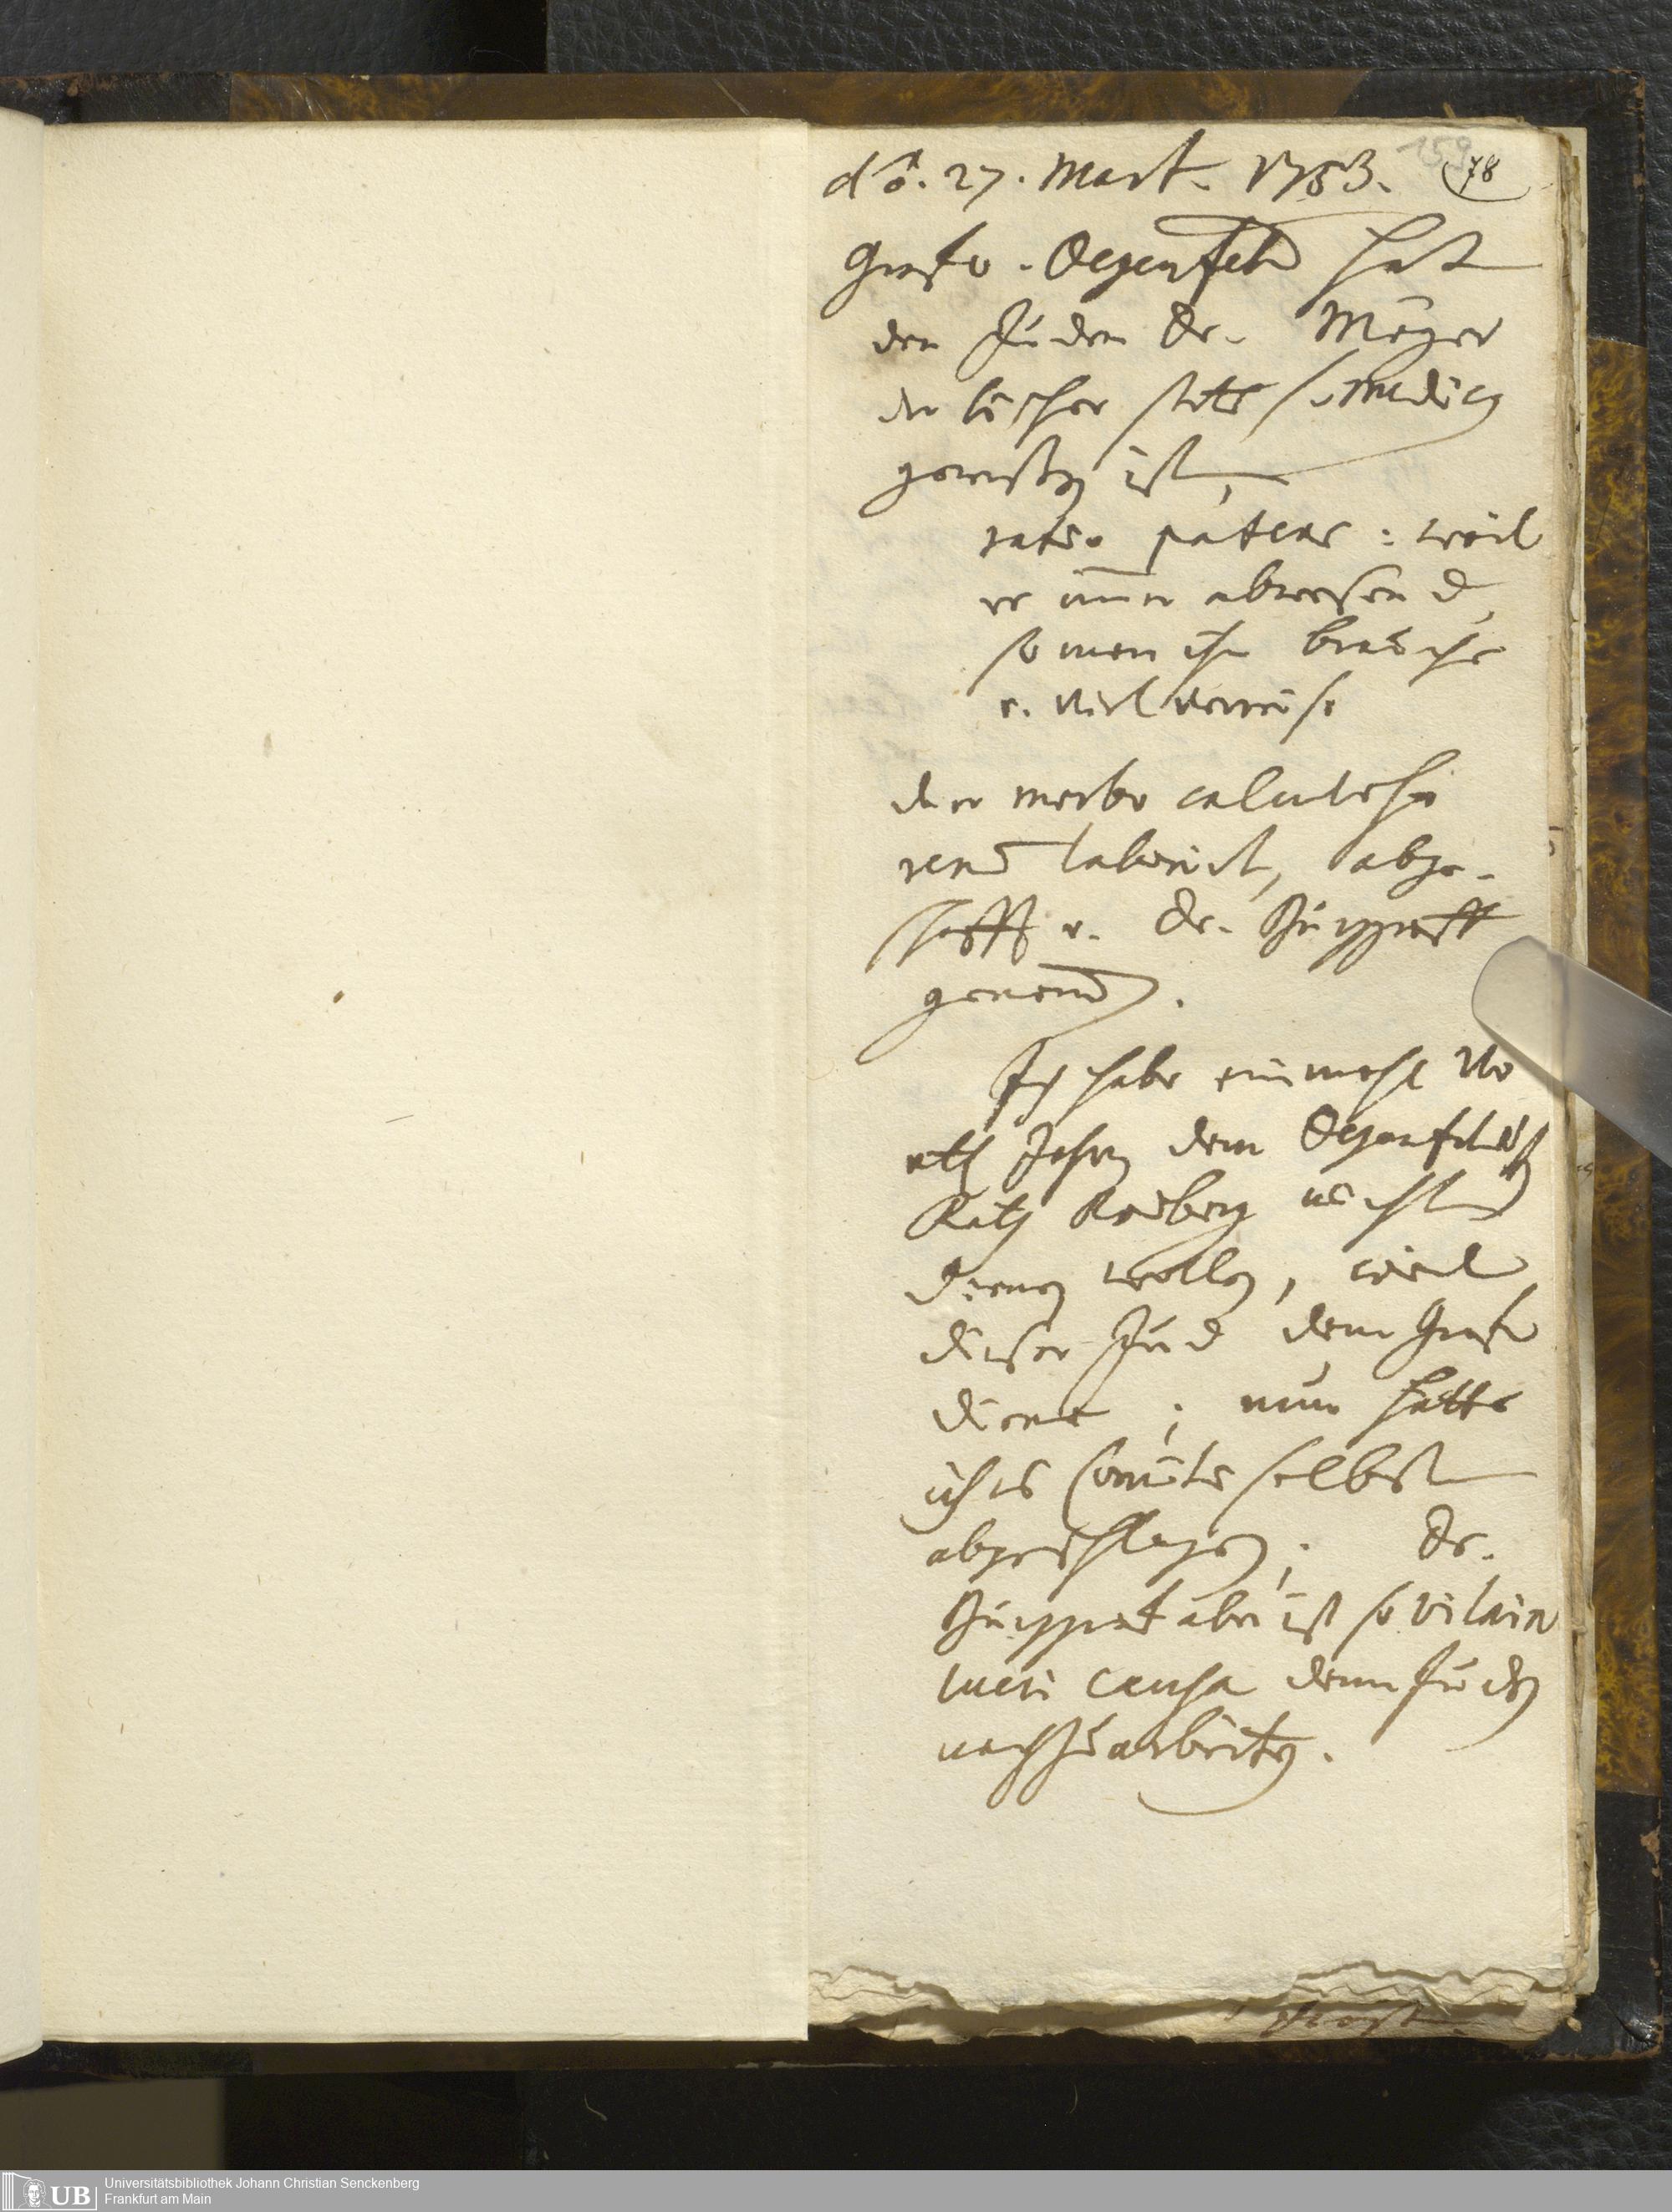 dō. 27. Mart. 1753.
159
78
Graf v. Degenfeld hat
den Juden Dr. Meyer
der bisher stets s. Medicus
gewesen ist,
ratio patens: weil
er immer abwesend,
so man ihn brauche
u. viel verreise
der morbo calculoso
renum laborirt, abge-
schafft u. Dr. Juppert
genommen.
Ich habe einmahl vor
etl. Jahren dem Degenfeldischen
Rath nicht
dienen wollen, weil
dieser Jud dem Grafen
diente; nun hätte
ich es selbst
abgeschlagen; Dr.
aber ist so vilain
lucri causa dem Juden
nachzuarbeiten.
UB
Universitätsbibliothek Johann Christian Senckenberg
Frankfurt am Main